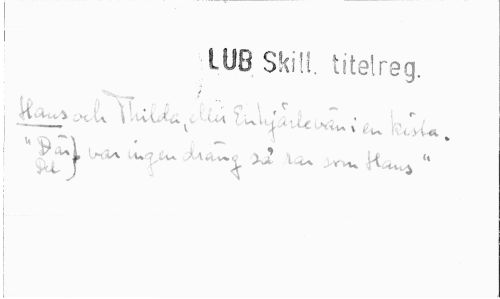 LUB Skill. titelreg.
Hans och Thilda, eller En hjärtevän i en kista.
"Där } var ingen dräng så rar som Hans"
Det